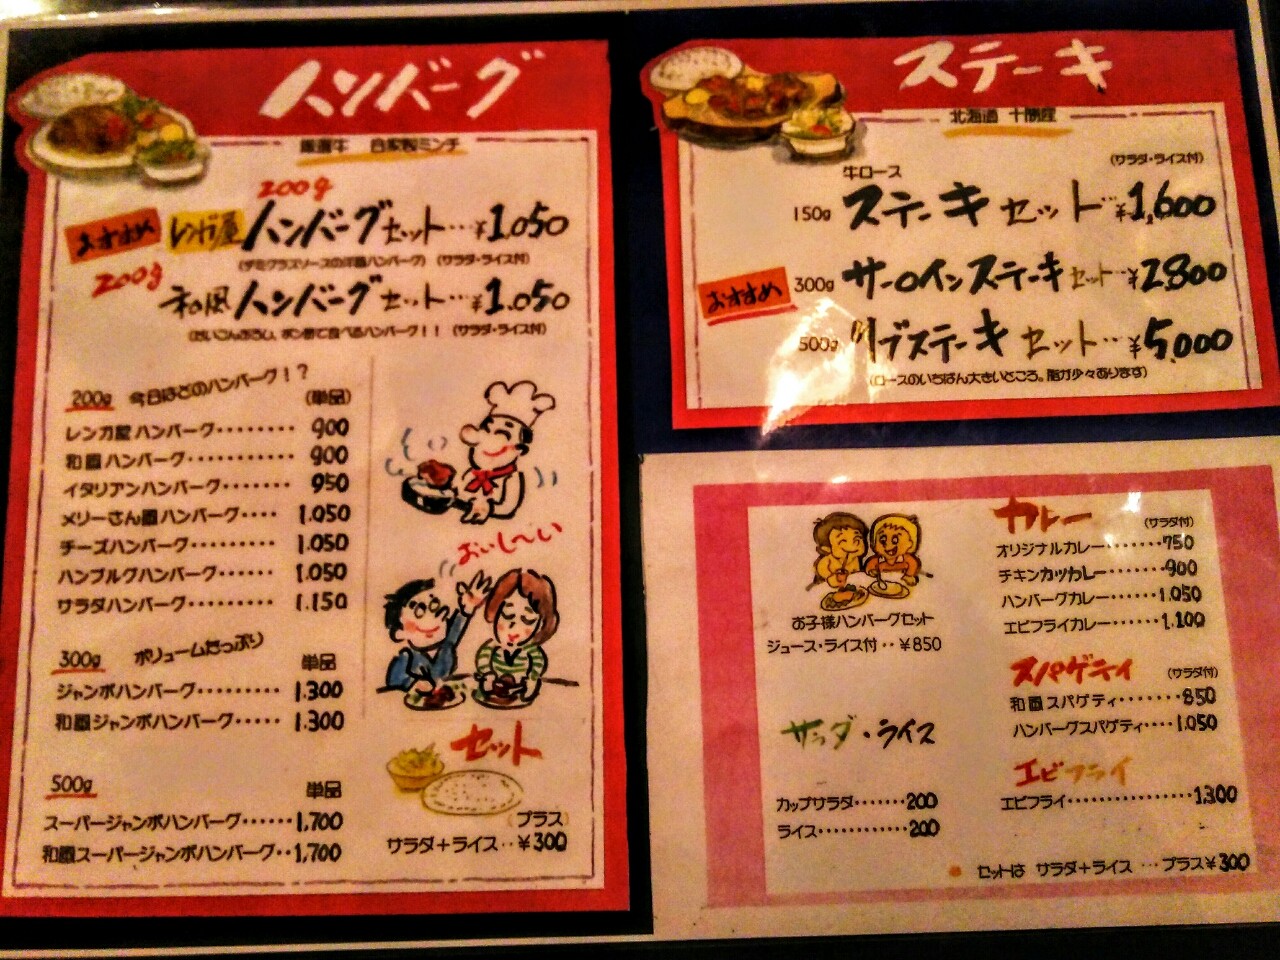 ハンバーグ
厳選牛 自家製ミンチ
200g
おすすめ レンガ屋ハンバーグセット…¥1,050
(デミグラスソースの洋風ハンバーグ) (サラダ・ライス付)
200g
和風ハンバーグセット…¥1.050
(だいこんおろし、ポン酢で食べるハンバーグ!! (サラダ・ライス付)
200g 今日はどのハンバーグ!?
(単品)
レンガ屋ハンバーグ・・・・・・・・900
和風ハンバーグ・・・・・・・・・・・900
イタリアンハンバーグ・・・・・・・950
メリーさん風ハンバーグ・・・・1.050
チーズハンバーグ・・・・・・・・・1.050
ハンブルグハンバーグ・・・・・・1.050
サラダハンバーグ・・・・・・・・・1.150
おいし〜い
300g ボリュームたっぷり 単品
ジャンボハンバーグ・・・・・・・・・1.300
和風ジャンボハンバーグ・・・・・1.300
500g 単品
スーパージャンボハンバーグ・・・・・・1,700
和風スーパージャンボハンバーグ・・1,700
セット
(プラス)
サラダ+ライス・・¥300
ステーキ
北海道 十勝産
(サラダ・ライス付)
牛ロース
150g ステーキセット…¥1,600
おすすめ 300g サーロインステーキセット…¥2800
500g リブステーキセット…¥5,000
(ロースのいちばん大きいところ。脂が少々あります)
お子様ハンバーグセット
ジュース・ライス付・・¥850
サラダ・ライス
カップサラダ・・・・・・・200
ライス・・・・・・・・・・・・200
カレー (サラダ付)
オリジナルカレー・・・・・・・750
チキンカツカレー・・・・・・・900
ハンバーグカレー・・・・・・1.050
エビフライカレー・・・・・・1,100
スパゲティ (サラダ付)
和風スパゲティ・・・・・・・850
ハンバーグスパゲティ・・・・1.050
エビフライ
エビフライ・・・・・・・・・・・・・・1,300
セットは サラダ+ライス …プラス¥300